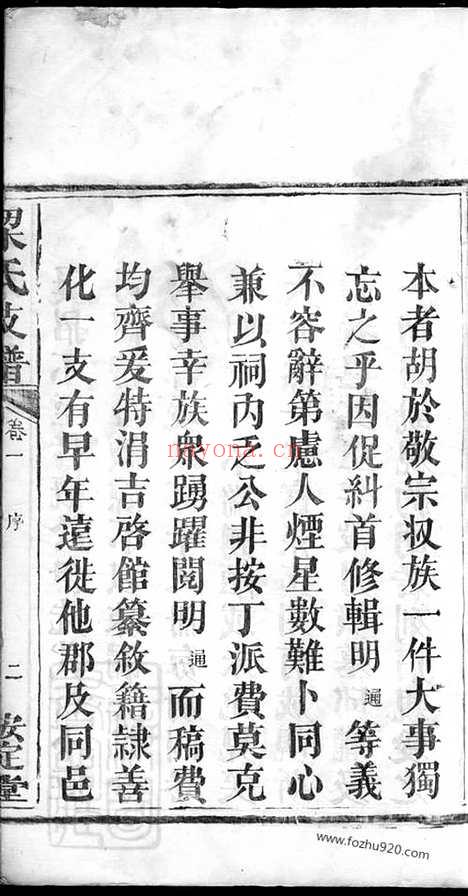 本者胡於敬宗収族一件大事獨
忘之乎因促糾首修輯明通等義
不容辭第慮人煙星數難卜同心
兼以祠內乏公非按丁派費莫克
舉事幸族衆踴躍閱明通而稿費
均齊爰特涓吉啓館纂敘籍隸善
化一支有早年遠徙他郡及同邑
梁氏支譜
卷一
序
二
安定堂
nayona.cn
www.fozhu920.com